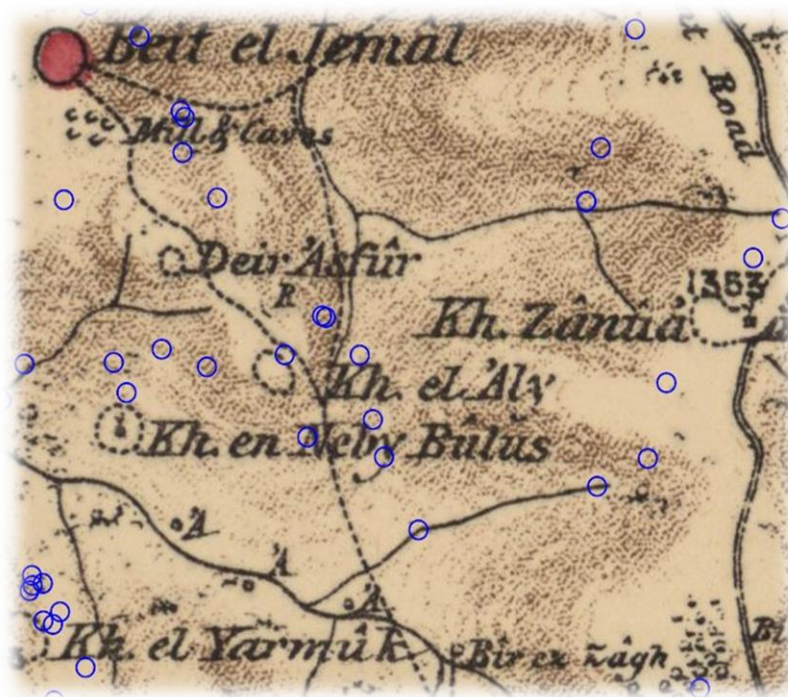 Beit el Jemâl
Road
Mill & Caves
Deir 'Asfûr
R
1353
Kh. Zânûâ
Kh. el 'Aly
Kh. en Neby Bûlus
'A
'A
'A
Kh. el Yarmûk
Bîr ez Zâgh